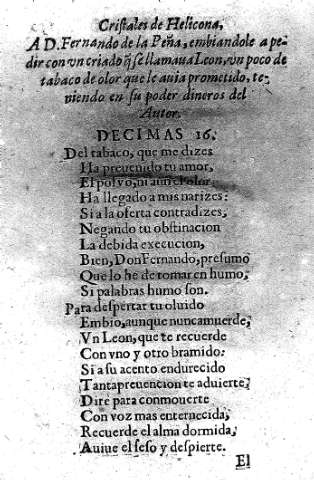 Cristales de Helicona,
A D. Fernando de la Peña, embiandole a pe-
dir con vn criado q̃ se llamaua Leon, vn poco de
tabaco de olor que le auia prometido, te-
niendo en su poder dineros del
Autor.
DECIMAS 16.
Del tabaco, que me dizes
Ha preuenido tu amor,
El poluo, ni aun el olor
Ha llegado a mis narizes:
Si a la oferta contradizes,
Negando tu obstinacion
La debida execucion,
Bien, Don Fernando, presumo
Que lo he de tomar en humo,
Si palabras humo son.
Para despertar tu oluido
Embio, aunque nunca muerde,
Vn Leon, que te recuerde
Con vno y otro bramido:
Si a su acento endurecido
Tanta preuencion te aduierte,
Dirè para conmouerte
Con voz mas enternecida,
Recuerde el alma dormida,
Auiue el seso y despierte.
El